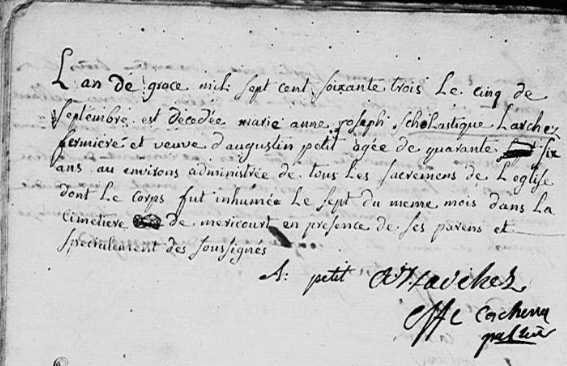 L an de grace mil sept cent soixante trois le cinq de
septembre est decedée marie anne joseph scholastique Larchez
fermiere et veuve d'augustin petit agée de quarante six
ans au environs administrée de tous les sacremens de L'eglise
dont le corps fut inhumée le sept du meme mois dans La
cimetiere de mericourt en presence de ses parens et
specialement des soussignés
A: petit